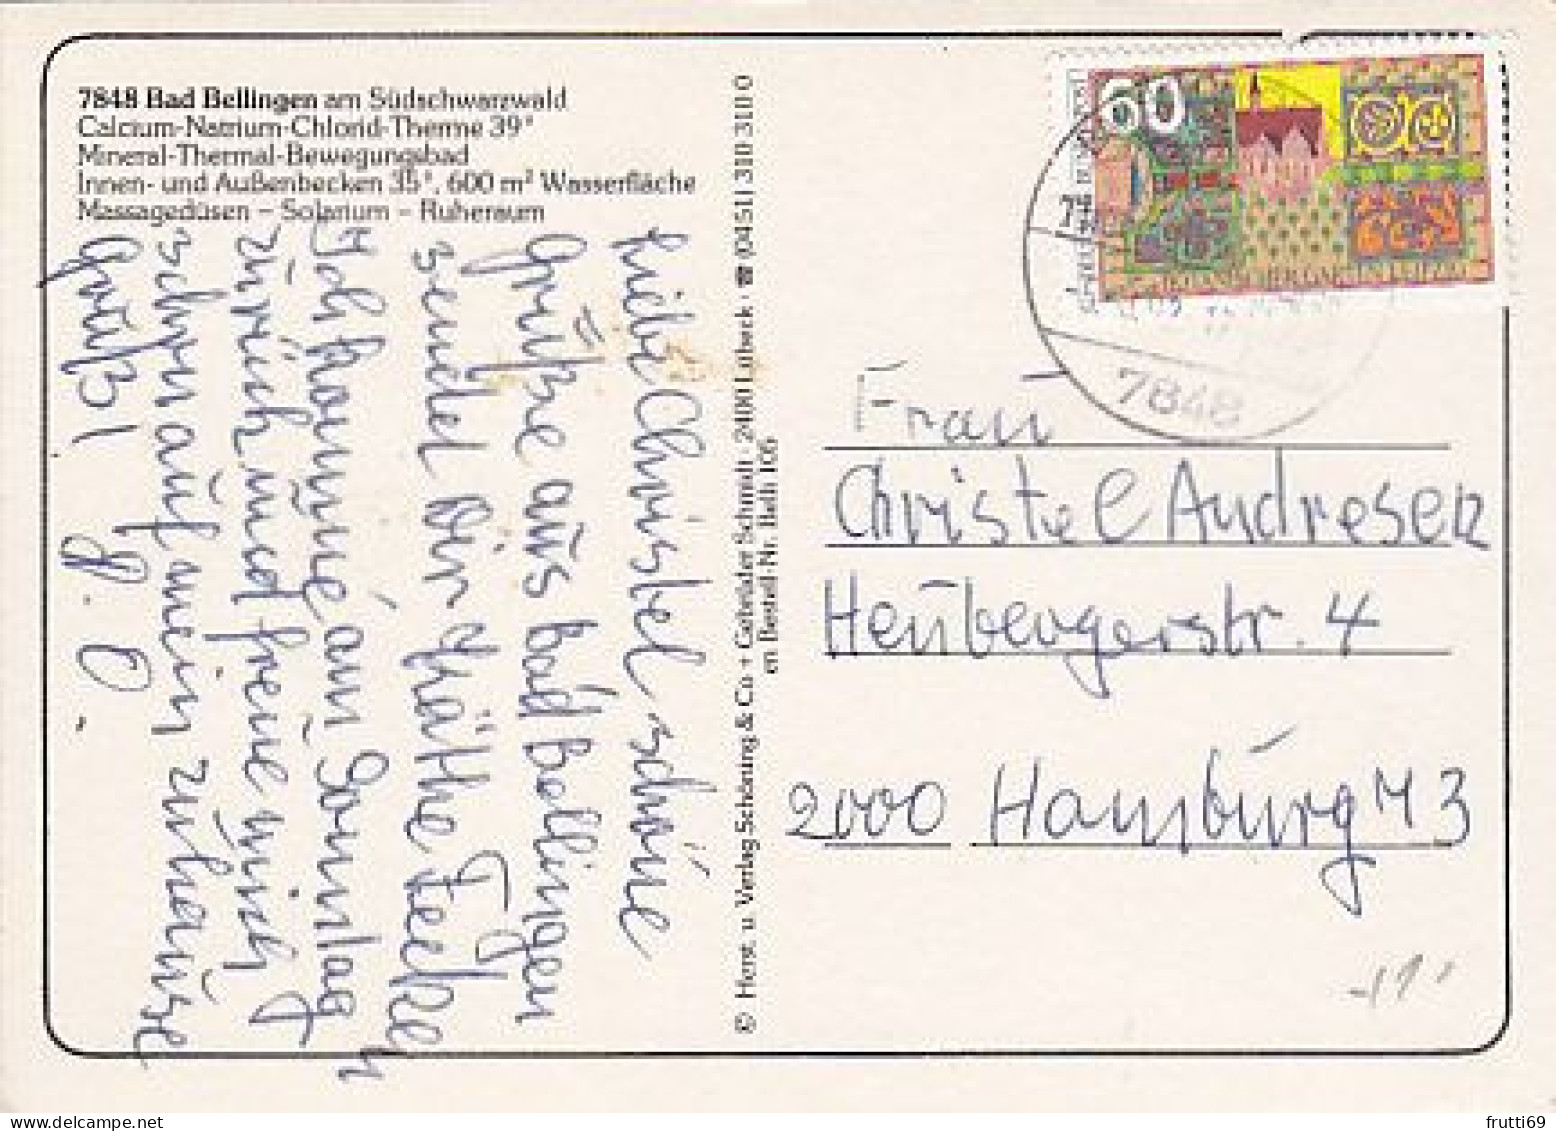 7848 Bad Bellingen am Südschwarzwald
Calcium-Natrium-Chlorid-Therme 39°
Mineral-Thermal-Bewegungsbad
Innen- und Außenbecken 35°, 600 m² Wasserfläche
Massagedüsen – Solarium – Ruheraum
Liebe Christel schöne
Grüße aus Bad Bellingen
sendet Dir Käthe
Ich komme am Sonntag
zurück und freue mich
schon auf mein zuhause
Gruß!
© Herst. u. Verlag Schöning & Co + Gebrüder Schmidt · 2400 Lübeck · ☎ (0451) 310 310 0
en Bestell-Nr. Belli 105
60
BOTANISCHER GARTEN LEIPZIG
7848
Frau
Christel Andresen
Heubergerstr. 4
2000 Hamburg 73
frutti69